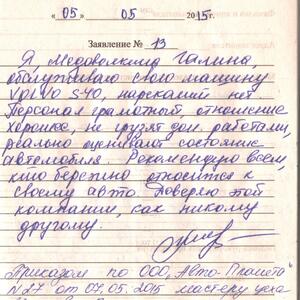 « 05 » 05 2015 г.
Заявление № 13
Я Медоволкина Галина,
обслуживаю свою машину
VOLVO S-40, нареканий нет
Персонал грамотный, отношение
хорошее, не грузят доп. работами,
реально оценивают состояние
автомобиля. Рекомендую всем,
кто бережно относится к
своему авто. Доверяю этой
компании, как никому
другому.
Приказом по ООО „Авто-Планета"
№27 от 07.05.2015 мастеру цеха